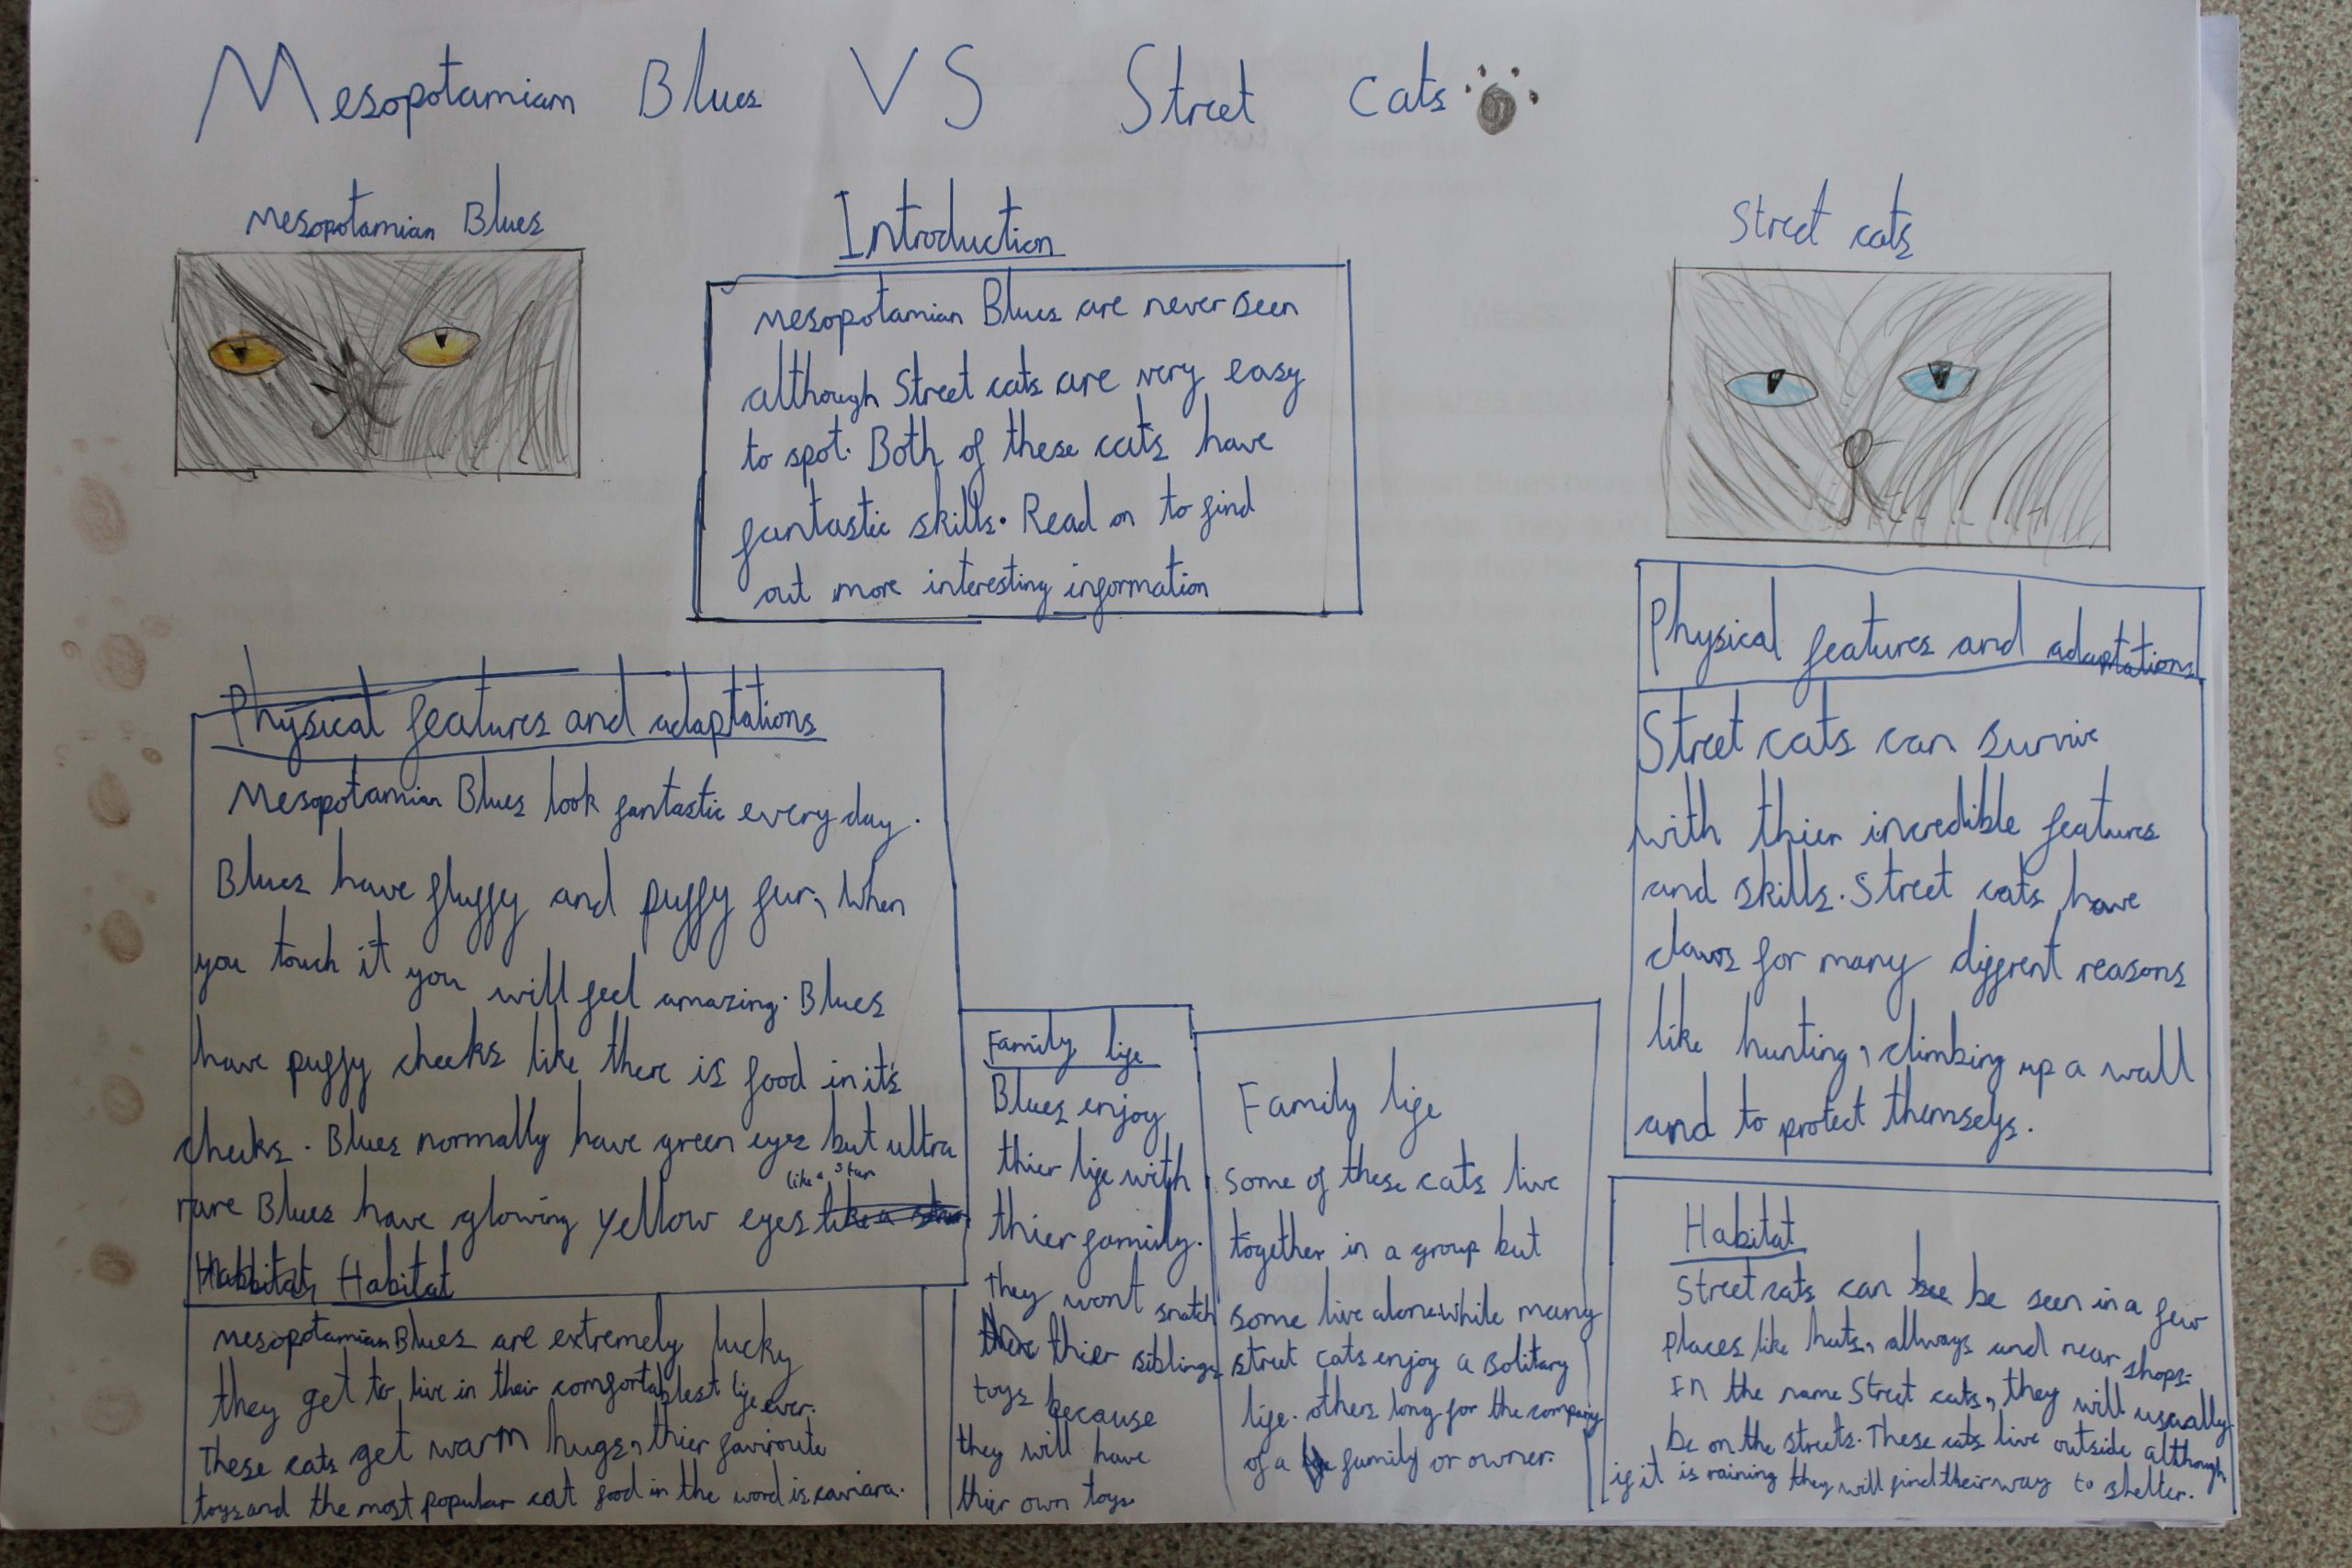 Mesopotamian Blues VS Street Cats
Mesopotamian Blues
Introduction
Mesopotamian Blues are never seen
although Street cats are very easy
to spot. Both of these cats have
fantastic skills. Read on to find
out more interesting information
Street cats
Physical features and adaptations
Mesopotamian Blues look fantastic every day.
Blues have fluffy and puffy fur, when
you touch it you will feel amazing. Blues
have puffy cheeks like there is food in it's
cheeks. Blues normally have green eyes but ultra
like a star
rare Blues have glowing yellow eyes like a star
Habbitat, Habitat
Mesopotamian Blues are extremely lucky
they get to live in their comfortablest life ever.
These cats get warm hugs, thier faviroute
toys and the most popular cat food in the word is caviara.
Family life
Blues enjoy
thier life with
thier family.
they wont snatch
thier siblings
toys because
they will have
thier own toys.
Family life
Some of these cats live
together in a group but
some live alone while many
street cats enjoy a solitary
life. others long for the company
of a family or owner.
Physical features and adaptations
Street cats can survive
with thier incredible features
and skills. Street cats have
claws for many diffrent reasons
like hunting, climbing up a wall
and to protect themselfs.
Habitat
Street cats can be seen in a few
places like huts, allways and near shops.
In the name Street cats, they will usually
be on the streets. These cats live outside although
if it is raining they will find their way to shelter.